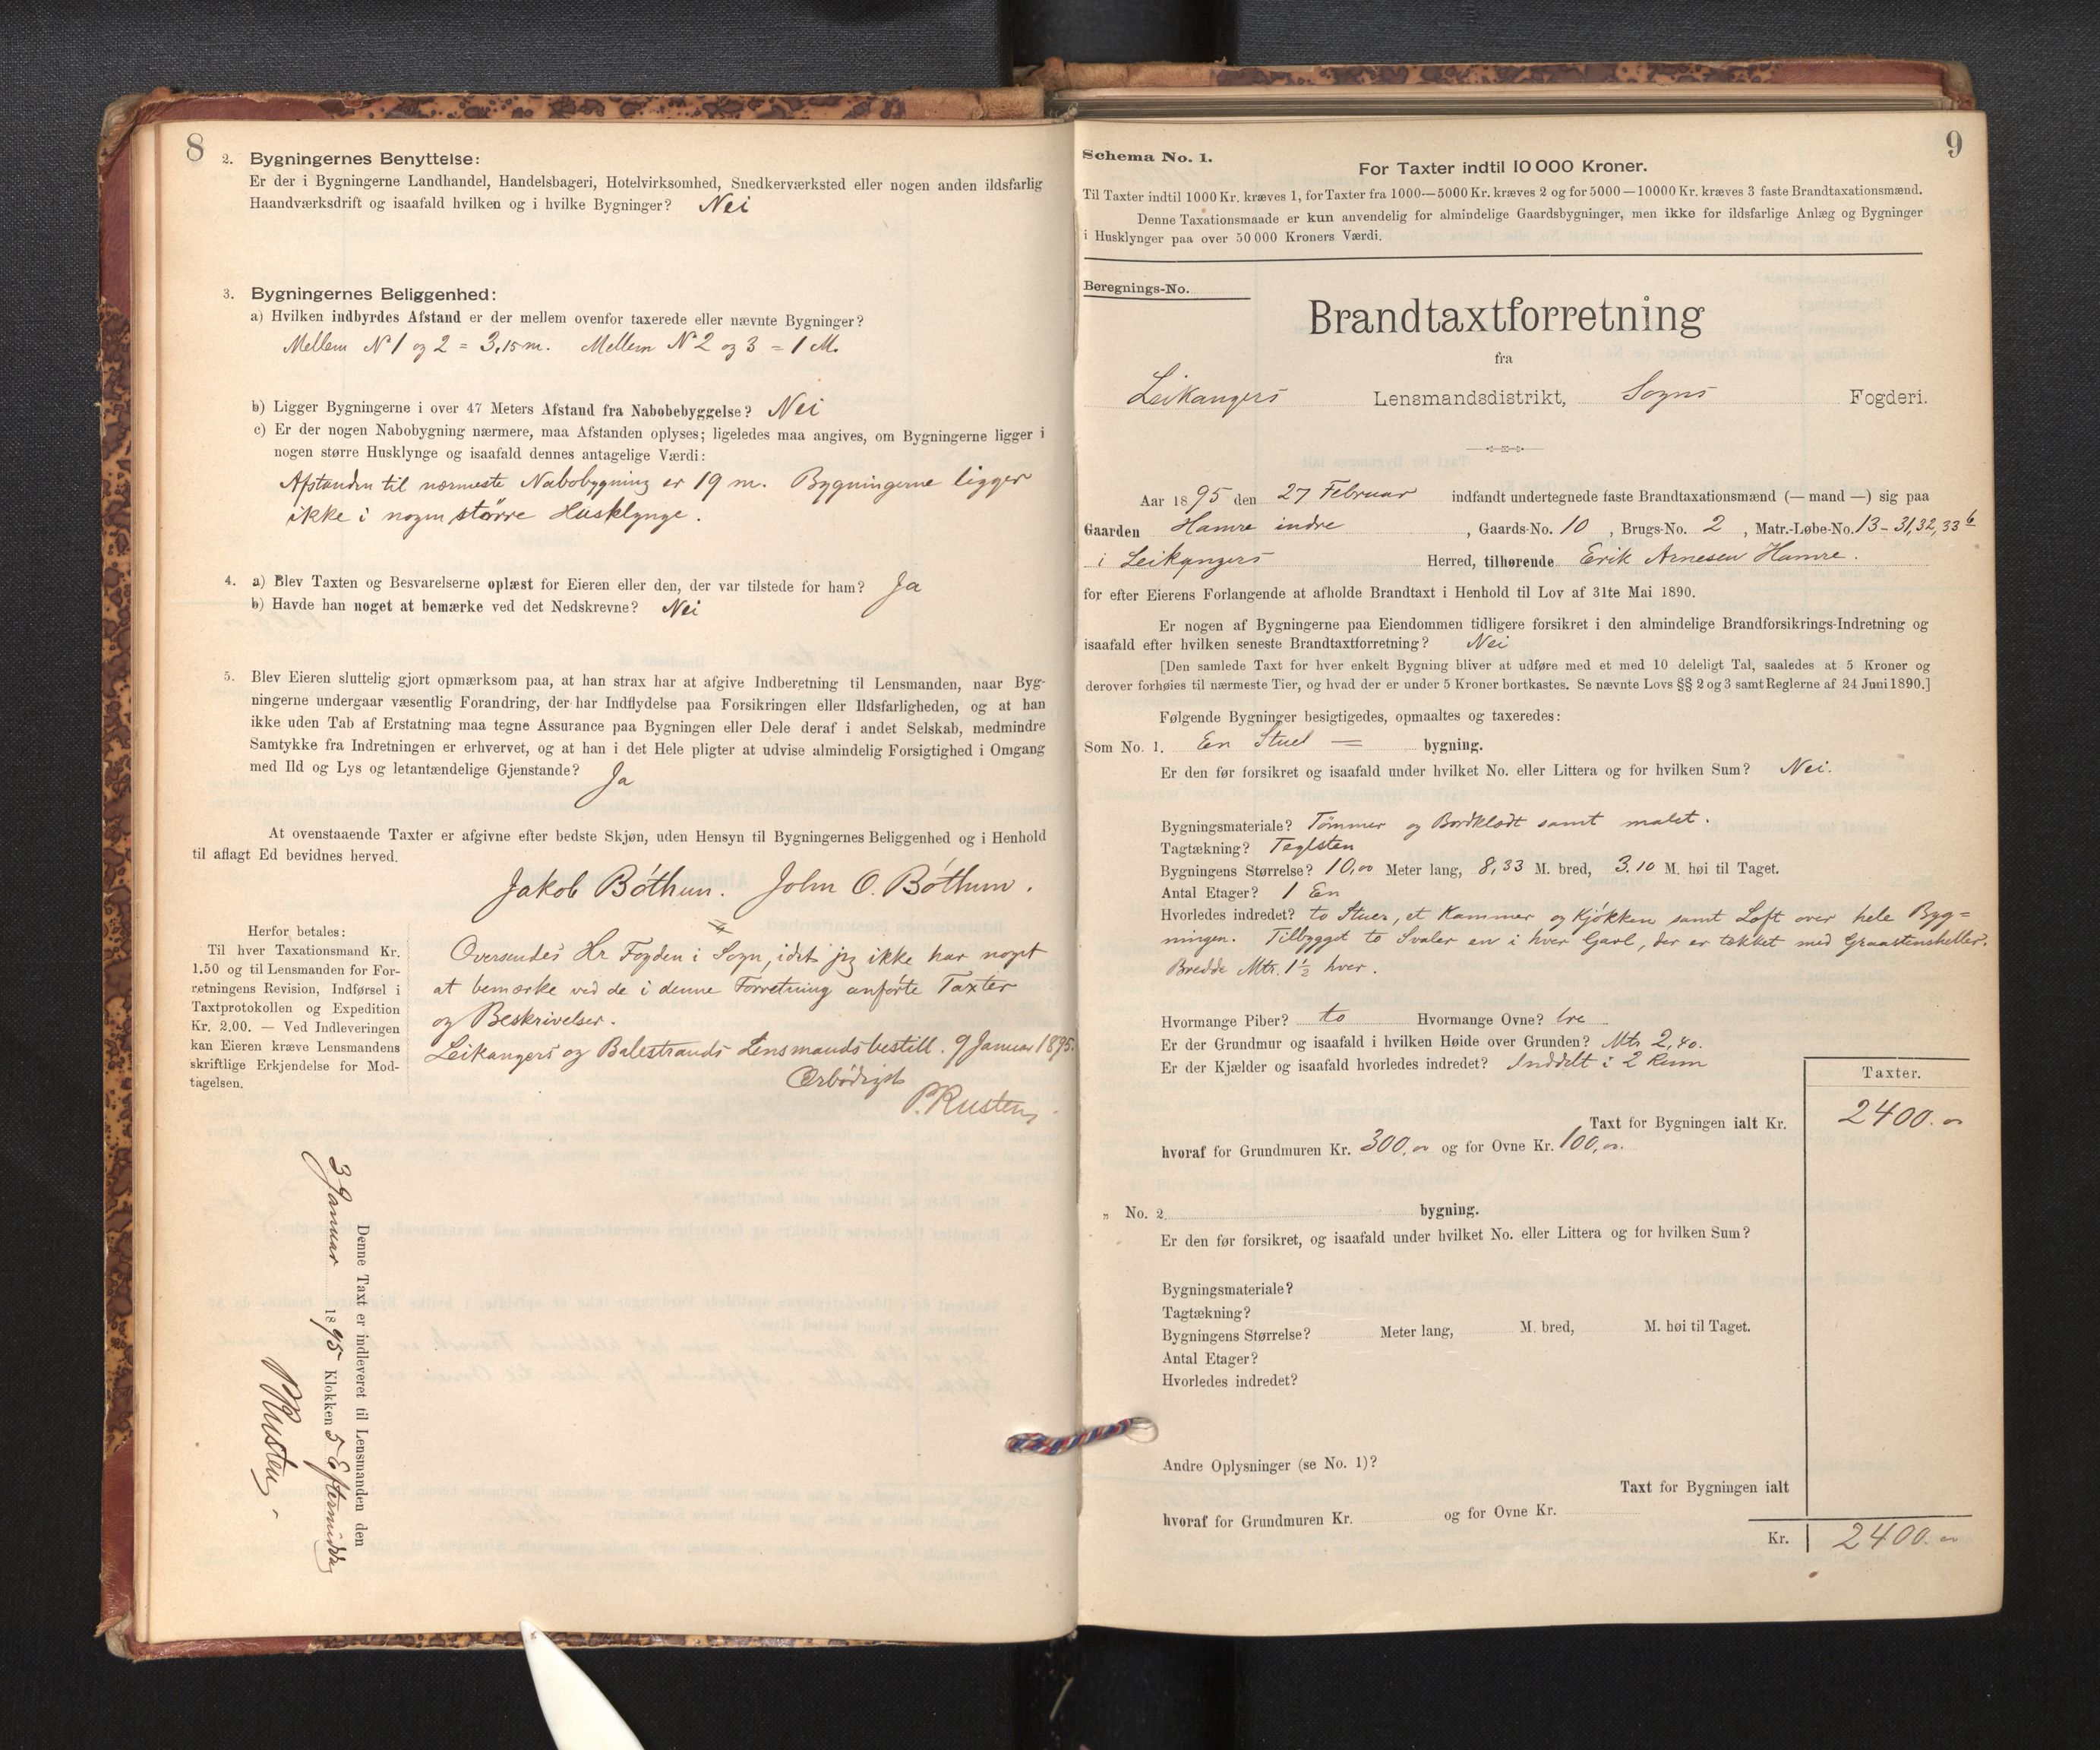 8
2. Bygningernes Benyttelse:
Er der i Bygningerne Landhandel, Handelsbageri, Hotelvirksomhed, Snedkerværksted eller nogen anden ildsfarlig
Haandværksdrift og isaafald hvilken og i hvilke Bygninger? Nei
3. Bygningernes Beliggenhed:
a) Hvilken indbyrdes Afstand er der mellem ovenfor taxerede eller nævnte Bygninger?
Mellem No 1 og 2 = 3,15 m. Mellem No 2 og 3 = 1 M.
b) Ligger Bygningerne i over 47 Meters Afstand fra Nabobebyggelse? Nei
c) Er der nogen Nabobygning nærmere, maa Afstanden oplyses; ligeledes maa angives, om Bygningerne ligger i
nogen større Husklynge og isaafald dennes antagelige Værdi:
Afstanden til nærmeste Nabobygning er 19 m. Bygningerne ligger
ikke i nogen større Husklynge.
4. a) Blev Taxten og Besvarelserne oplæst for Eieren eller den, der var tilstede for ham? Ja
b) Havde han noget at bemærke ved det Nedskrevne? Nei
5. Blev Eieren sluttelig gjort opmærksom paa, at han strax har at afgive Indberetning til Lensmanden, naar Byg-
ningerne undergaar væsentlig Forandring, der har Indflydelse paa Forsikringen eller Ildsfarligheden, og at han
ikke uden Tab af Erstatning maa tegne Assurance paa Bygningen eller Dele deraf i andet Selskab, medmindre
Samtykke fra Indretningen er erhvervet, og at han i det Hele pligter at udvise almindelig Forsigtighed i Omgang
med Ild og Lys og letantændelige Gjenstande? Ja
At ovenstaaende Taxter er afgivne efter bedste Skjøn, uden Hensyn til Bygningernes Beliggenhed og i Henhold
til aflagt Ed bevidnes herved.
Jakob Bøthun. John O. Bøthun.
Herfor betales:
Til hver Taxationsmand Kr.
1.50 og til Lensmanden for For-
retningens Revision, Indførsel i
Taxtprotokollen og Expedition
Kr. 2.00. — Ved Indleveringen
kan Eieren kræve Lensmandens
skriftlige Erkjendelse for Mod-
tagelsen.
Oversendes Hr Fogden i Sogn, idet jeg ikke har noget
at bemærke ved de i denne Forretning anførte Taxter
og Beskrivelser.
Leikangers og Balestrands Lensmandsbestill. 9 Januar 1895.
Ærbødigst
P. Rusten
Denne Taxt er indleveret til Lensmanden den
3 Januar 1895 Klokken 5 Eftermiddag
P. Rusten
9
Schema No. 1.
For Taxter indtil 10 000 Kroner.
Til Taxter indtil 1000 Kr. kræves 1, for Taxter fra 1000—5000 Kr. kræves 2 og for 5000—10000 Kr. kræves 3 faste Brandtaxationsmænd.
Denne Taxationsmaade er kun anvendelig for almindelige Gaardsbygninger, men ikke for ildsfarlige Anlæg og Bygninger
i Husklynger paa over 50 000 Kroners Værdi.
Beregnings-No.
Brandtaxtforretning
fra
Leikangers Lensmandsdistrikt, Sogns Fogderi.
Aar 1895 den 27 Februar indfandt undertegnede faste Brandtaxationsmænd (— mand —) sig paa
Gaarden Hamre indre , Gaards-No. 10 , Brugs-No. 2 , Matr.-Løbe-No. 13 - 31, 32, 33 b
i Leikangers Herred, tilhørende Erik Arnesen Hamre.
for efter Eierens Forlangende at afholde Brandtaxt i Henhold til Lov af 31te Mai 1890.
Er nogen af Bygningerne paa Eiendommen tidligere forsikret i den almindelige Brandforsikrings-Indretning og
isaafald efter hvilken seneste Brandtaxtforretning? Nei
[Den samlede Taxt for hver enkelt Bygning bliver at udføre med et med 10 deleligt Tal, saaledes at 5 Kroner og
derover forhøies til nærmeste Tier, og hvad der er under 5 Kroner bortkastes. Se nævnte Lovs §§ 2 og 3 samt Reglerne af 24 Juni 1890.]
Følgende Bygninger besigtigedes, opmaaltes og taxeredes:
Som No. 1. En Stue = bygning.
Er den før forsikret og isaafald under hvilket No. eller Littera og for hvilken Sum? Nei.
Bygningsmateriale? Tømmer og Bordklædt samt malet.
Tagtækning? Teglsten
Bygningens Størrelse? 10,00 Meter lang, 8,33 M. bred, 3.10 M. høi til Taget.
Antal Etager? 1 En
Hvorledes indredet? to Stuer, et Kammer og Kjøkken samt Loft over hele Byg=
ningen. Tilbygget to Svaler en i hver Gavl, der er tækket med Graastensheller.
Bredde Mtr. 1½ hver.
Hvormange Piber? to Hvormange Ovne? tre
Er der Grundmur og isaafald i hvilken Høide over Grunden? Mtr 2,40.
Er der Kjælder og isaafald hvorledes indredet? Inddelt i 2 Rum
Taxter.
Taxt for Bygningen ialt Kr. 2400.00
hvoraf for Grundmuren Kr. 300,00 og for Ovne Kr. 100,00.
„ No. 2. bygning.
Er den før forsikret, og isaafald under hvilket No. eller Littera og for hvilken Sum?
Bygningsmateriale?
Tagtækning?
Bygningens Størrelse? Meter lang, M. bred, M. høi til Taget.
Antal Etager?
Hvorledes indredet?
Andre Oplysninger (se No. 1)?
Taxt for Bygningen ialt
hvoraf for Grundmuren Kr. og for Ovne Kr.
Kr. 2400.00